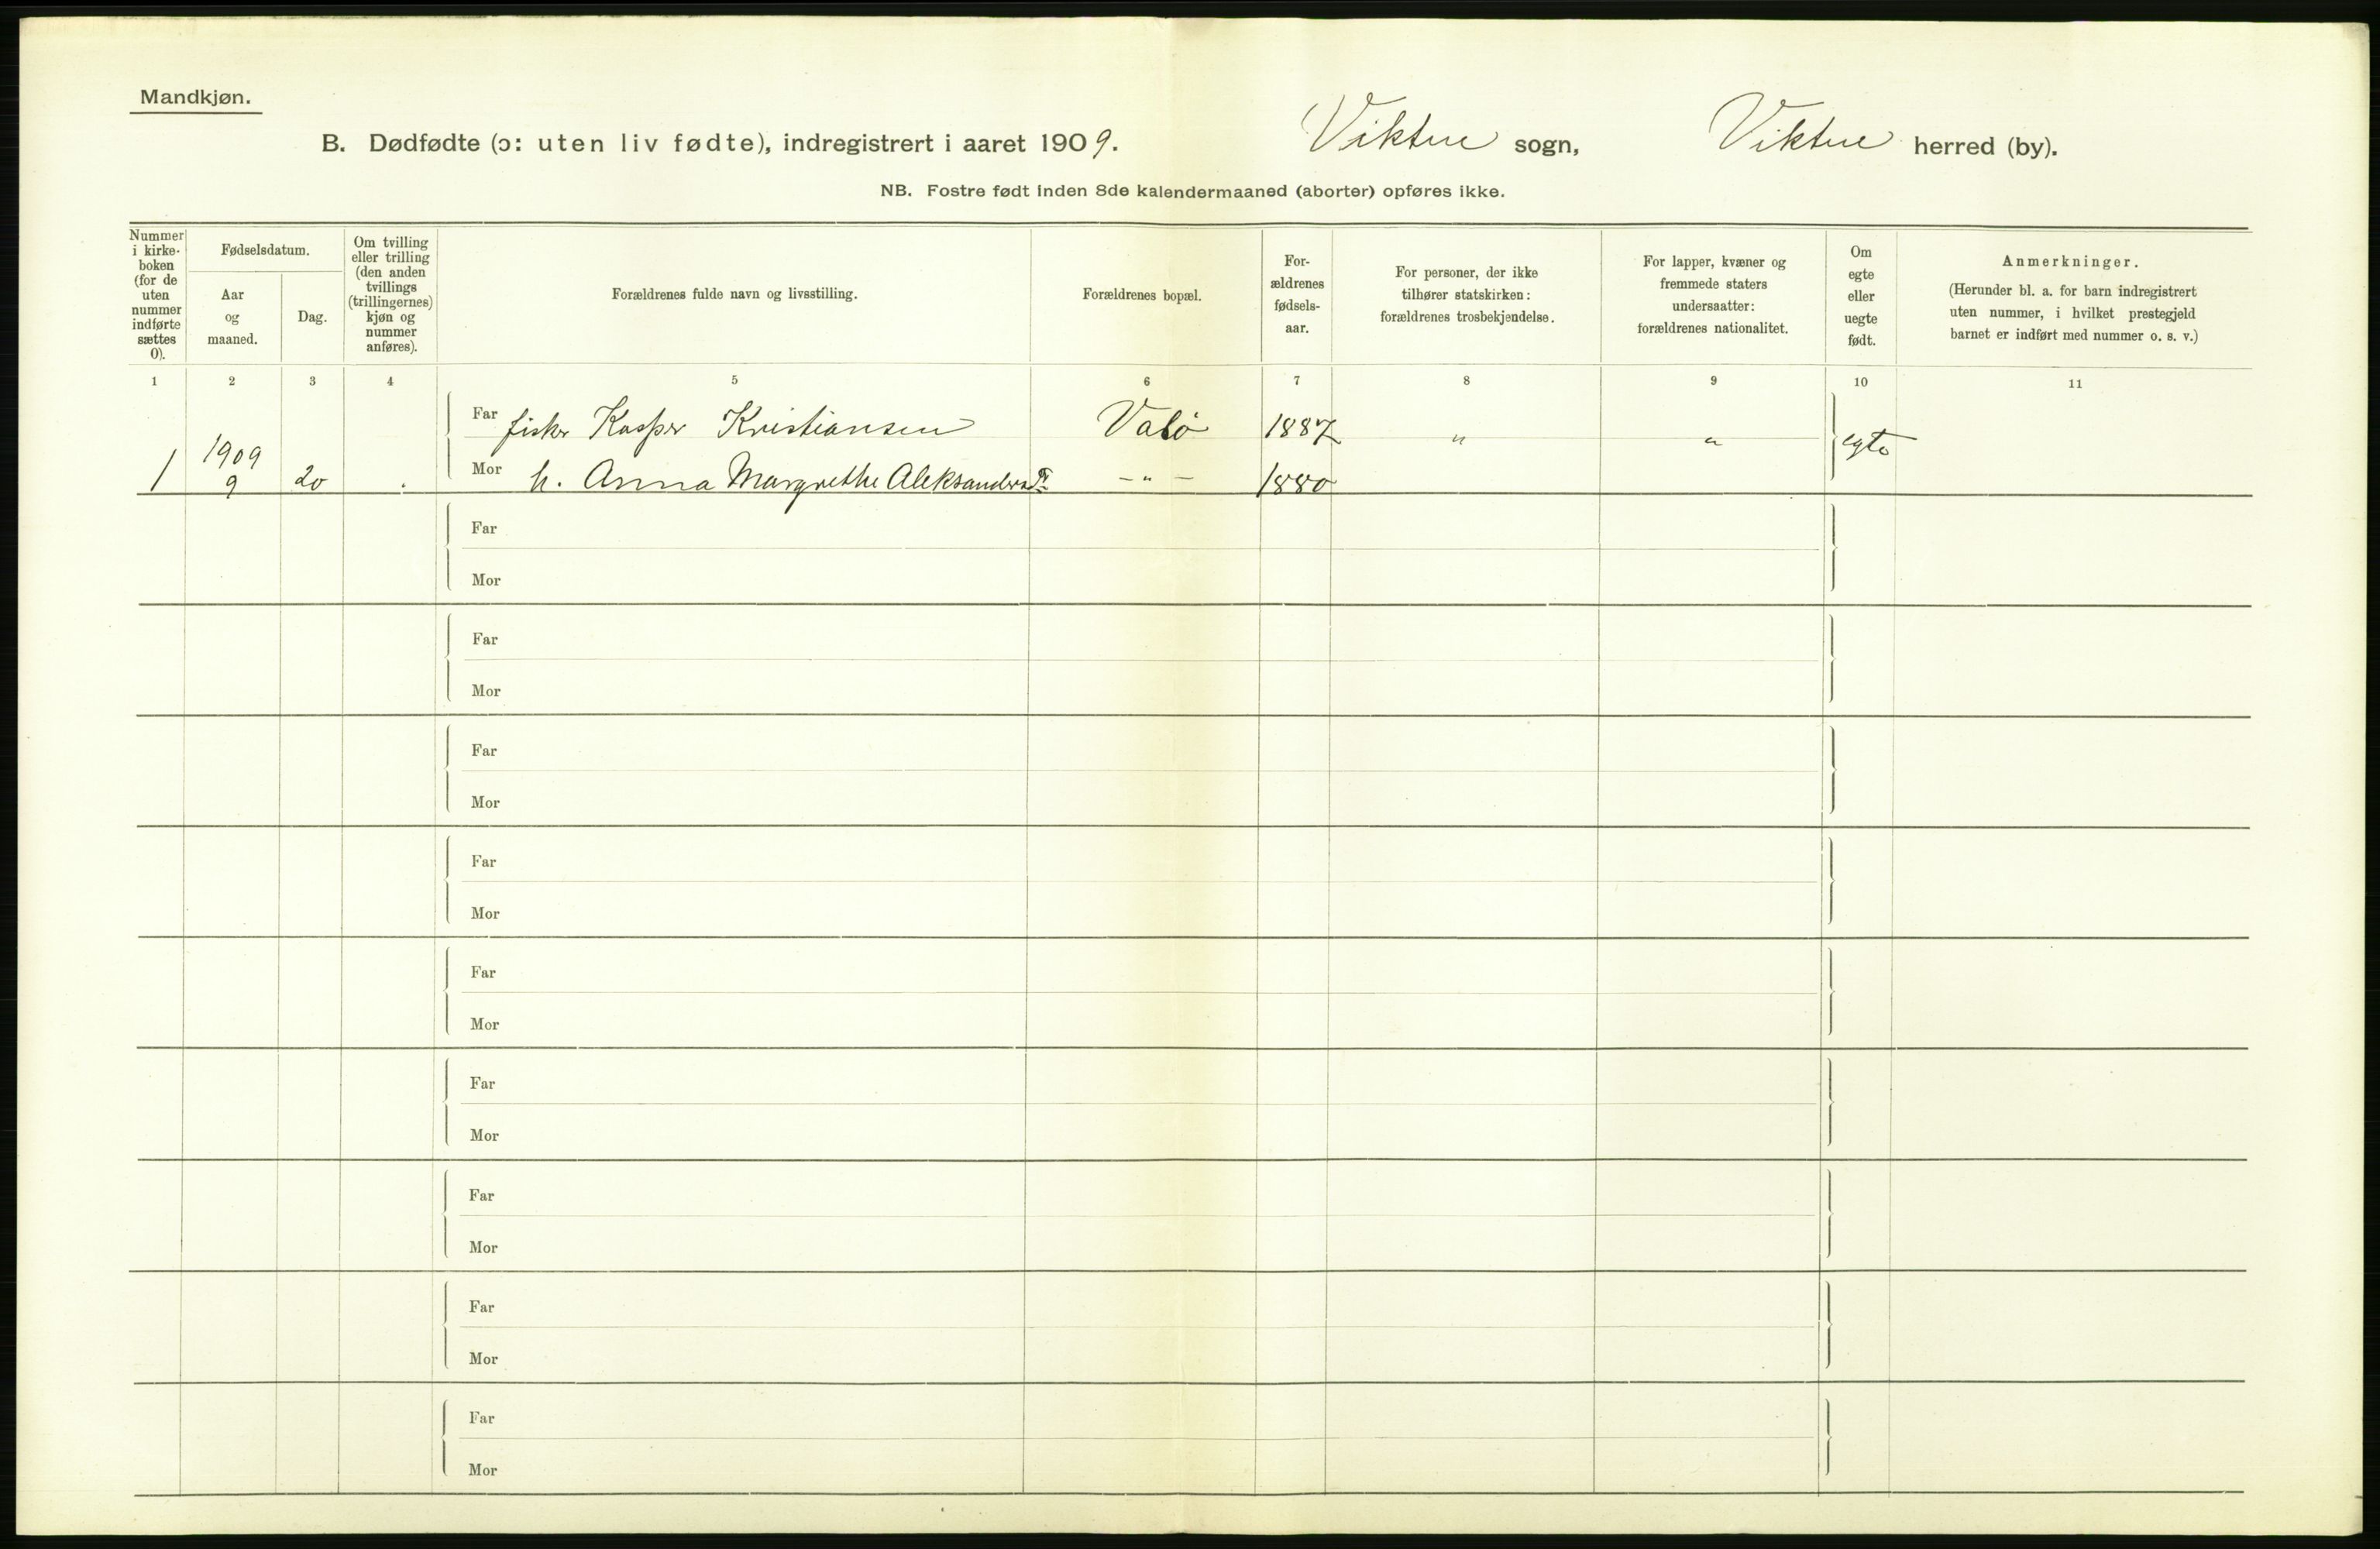 Mandkjøn.
B. Dødfødte (ɔ: uten liv fødte), indregistrert i aaret 1909. Viktne sogn, Viktne herred (by).
NB. Fostre født inden 8de kalendermaaned (aborter) opføres ikke.
Nummer
i kirke-
boken
(for de
uten
nummer
indførte
sættes
0).
Fødselsdatum.
Aar
og
maaned.
Dag.
Om tvilling
eller trilling
(den anden
tvillings
(trillingernes)
kjøn og
nummer
anføres).
Forældrenes fulde navn og livsstilling.
Forældrenes bopæl.
For-
ældrenes
fødsels-
aar.
For personer, der ikke
tilhører statskirken:
forældrenes trosbekjendelse.
For lapper, kvæner og
fremmede staters
undersaatter:
forældrenes nationalitet.
Om
egte
eller
uegte
født.
Anmerkninger.
(Herunder bl. a. for barn indregistrert
uten nummer, i hvilket prestegjeld
barnet er indført med nummer o. s. v.)
1 2 3 4 5 6 7 8 9 10 11
Far fisker Kasper Kristiansen Valø 1887 " " egte
1 1909 9 20 Mor h. Anna Margrethe Aleksandersdr. -"- 1880
Far
Mor
Far
Mor
Far
Mor
Far
Mor
Far
Mor
Far
Mor
Far
Mor
Far
Mor
Far
Mor